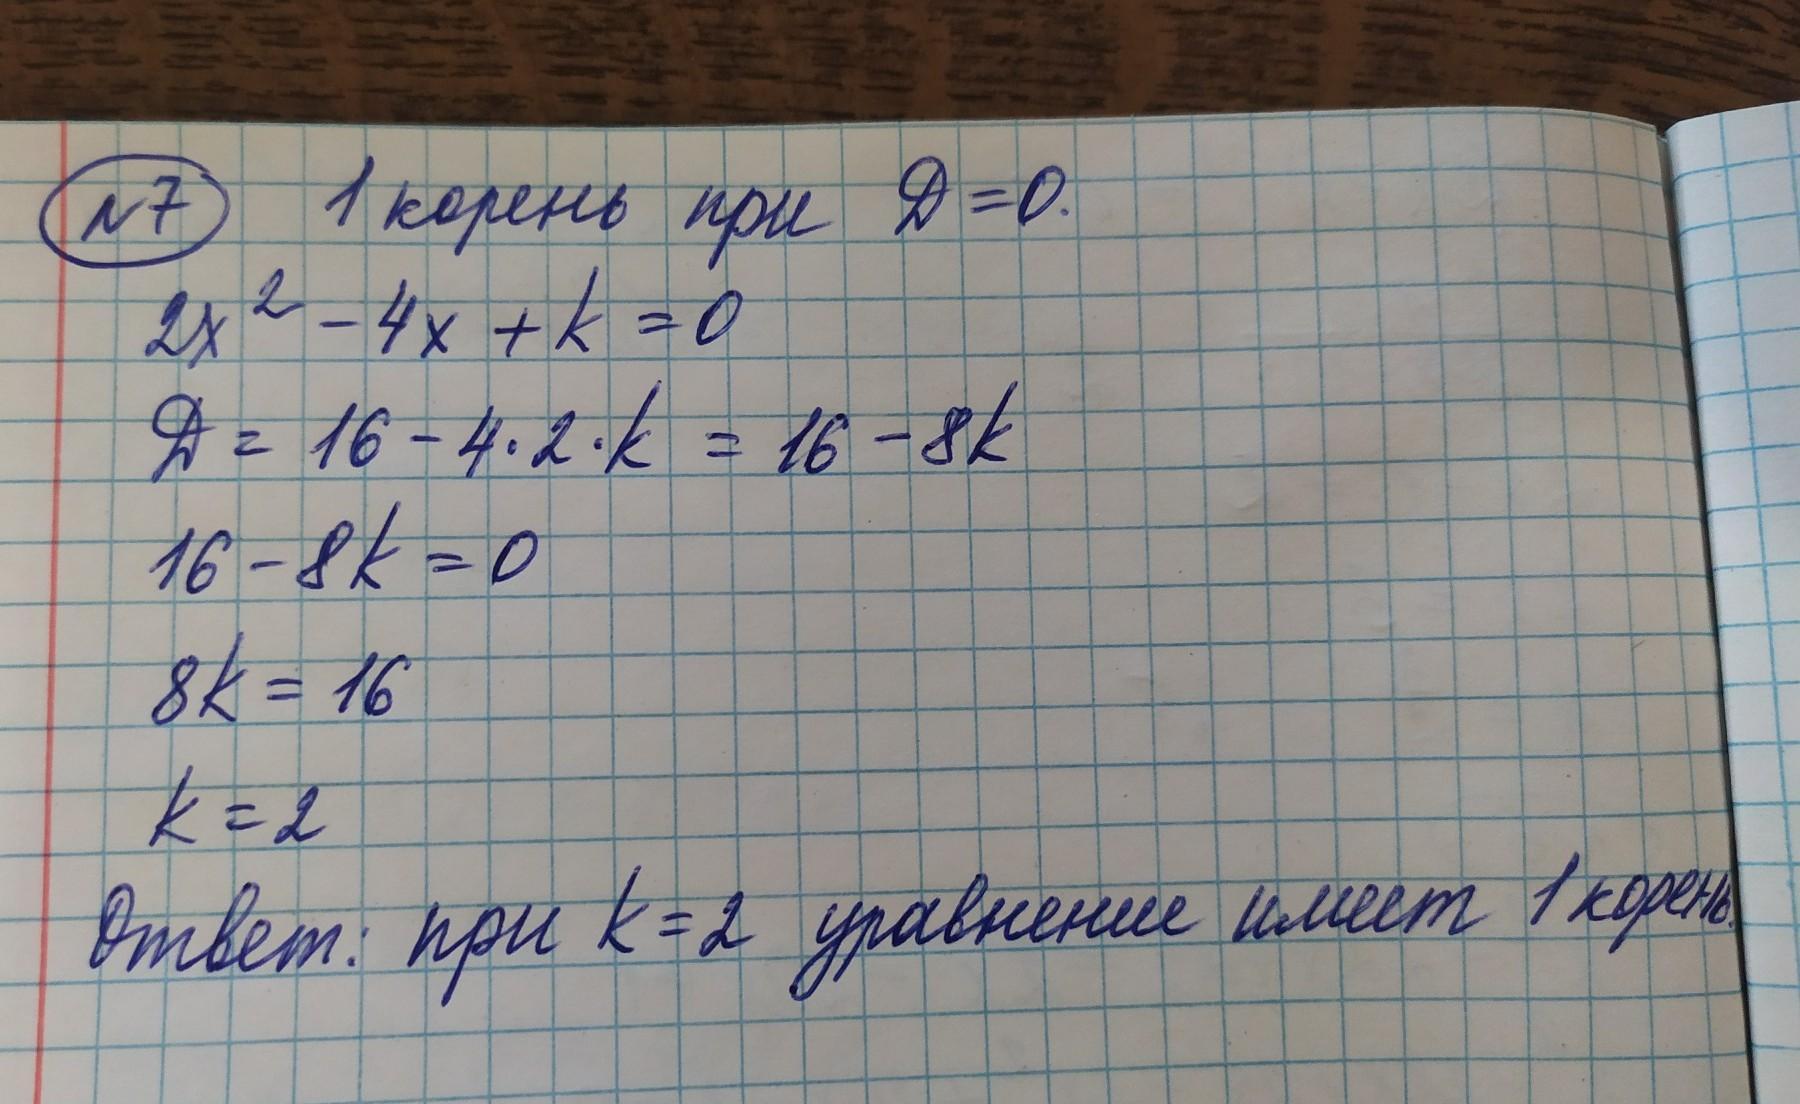 №7 1 корень при D=0.
2x² - 4x + k = 0
D = 16 - 4·2·k = 16 - 8k
16 - 8k = 0
8k = 16
k = 2
Ответ: при k=2 уравнение имеет 1 корень.